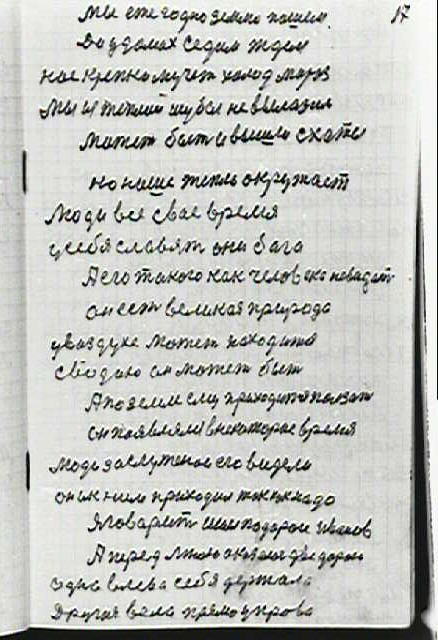 17
Мы ежегодно землю пашем
Ва удомах седим ждем
нас крепко мучет холод мороз
Мы из теплай шубы не вылазим
Может быт и вышли скаты
но наше тепло окружает
Люди все свае время
усебя славят они бага
А его такого как человека невидат
он ест великая природа
у ваздухе может находится
с водою он может быт
А по земле ему приходится ползат
он появлялся внекоторае время
Люди заслуженае его видели
он к ним приходил так как надо
Я говарит шел подороге Иванов
А перед мною оказалос две дороги
одна влева себя держала
Другая вела прямо управо